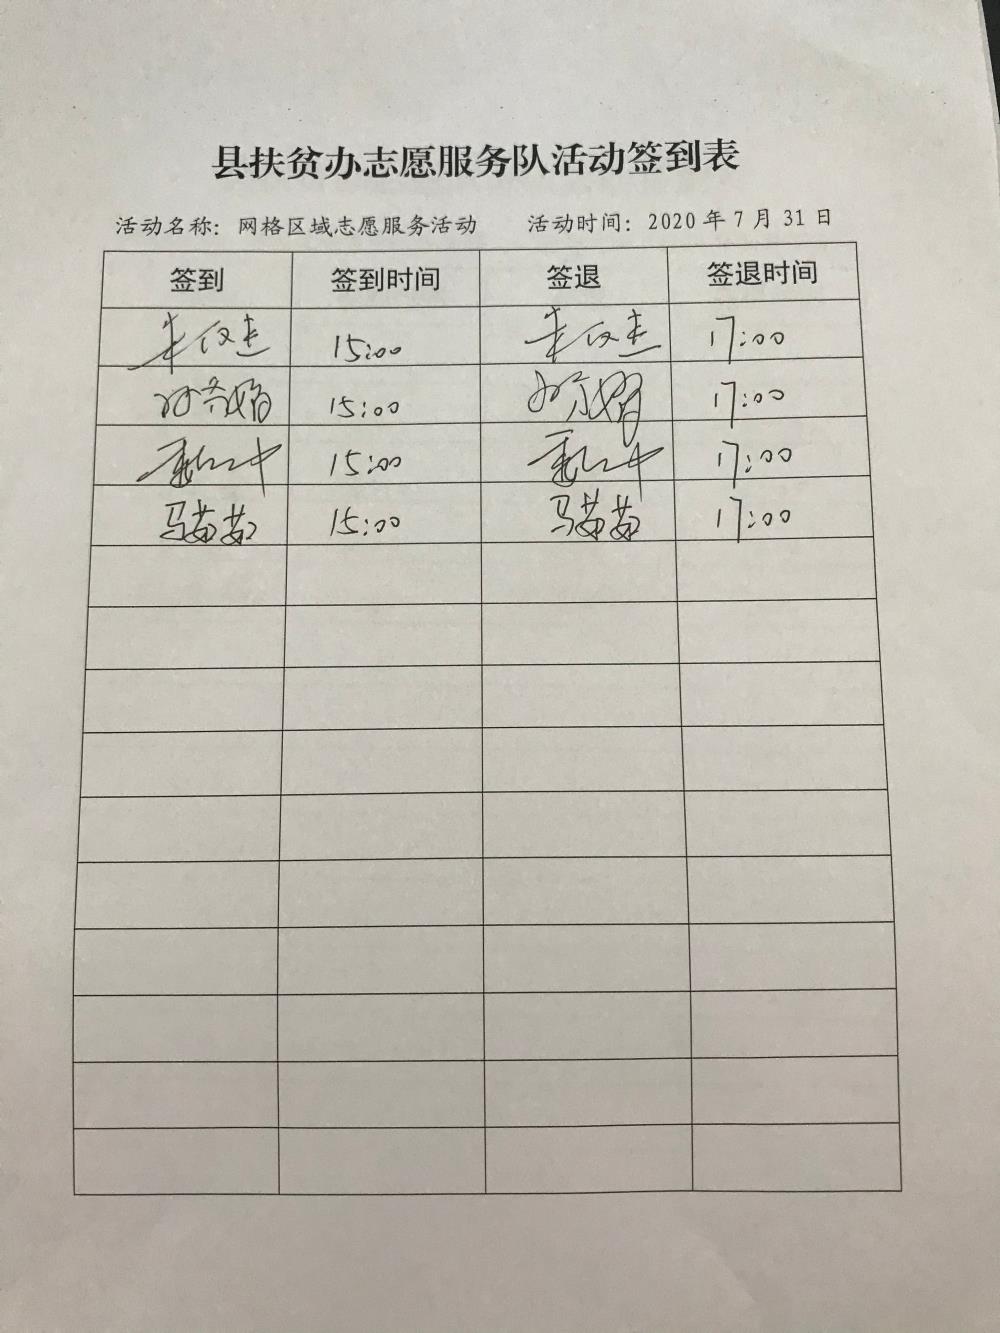 县扶贫办志愿服务队活动签到表
活动名称：网格区域志愿服务活动 活动时间：2020年7月31日
签到 签到时间 签退 签退时间
15:00 17:00
15:00 17:00
15:00 17:00
马苗苗 15:00 马苗苗 17:00